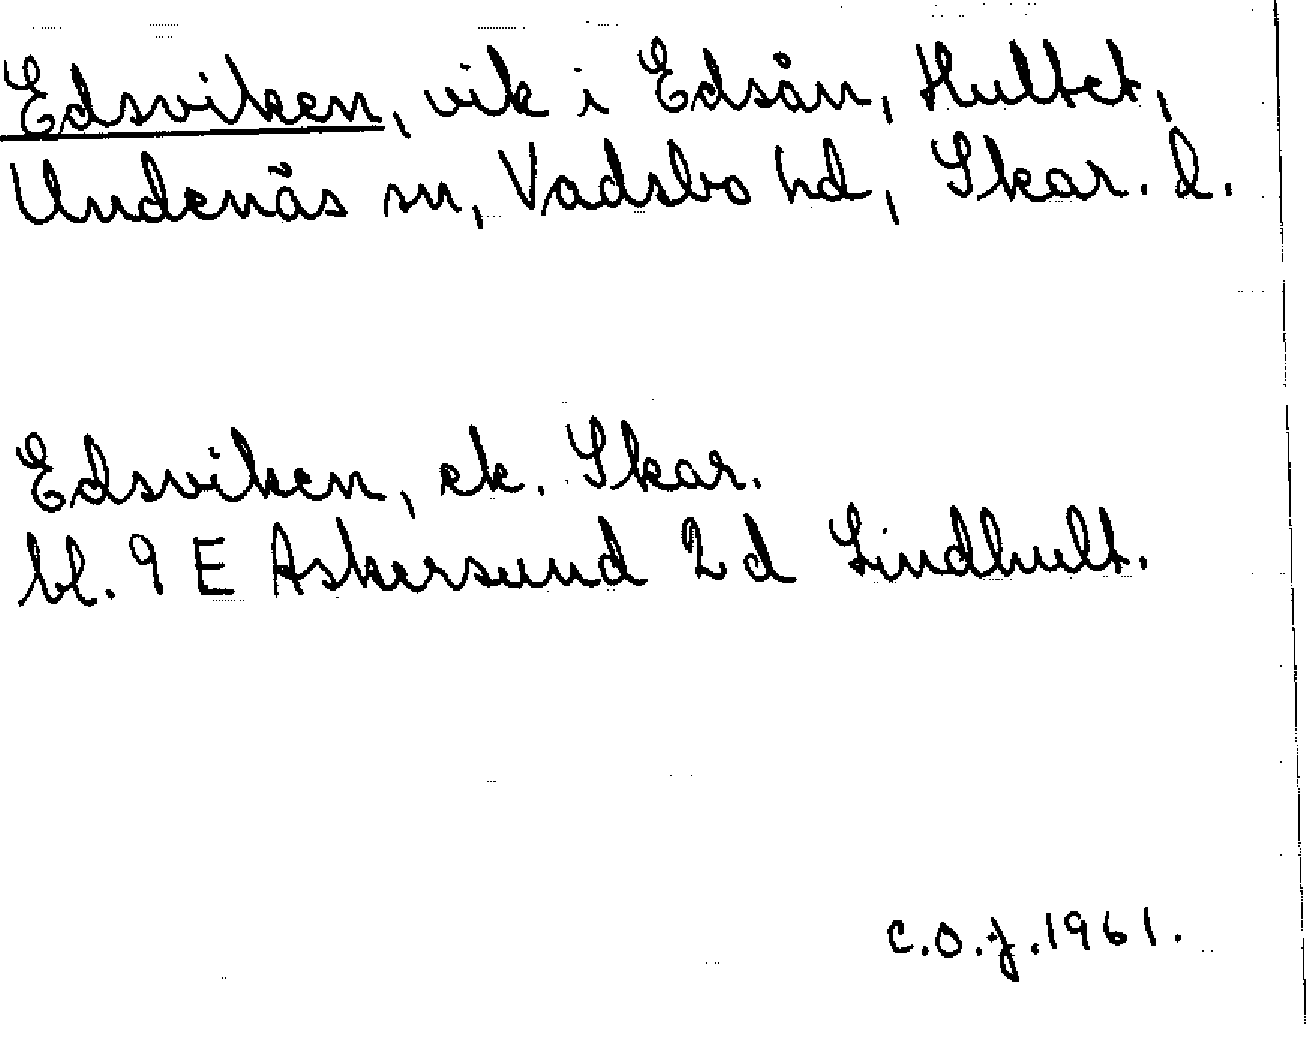 Edsviken, vik i Edsån, Hultet,
Undenäs sn, Vadsbo hd, Skar. l.
Edsviken, ek. Skar.
bl. 9 E Askersund 2 d Lindhult.
C.O.J. 1961.